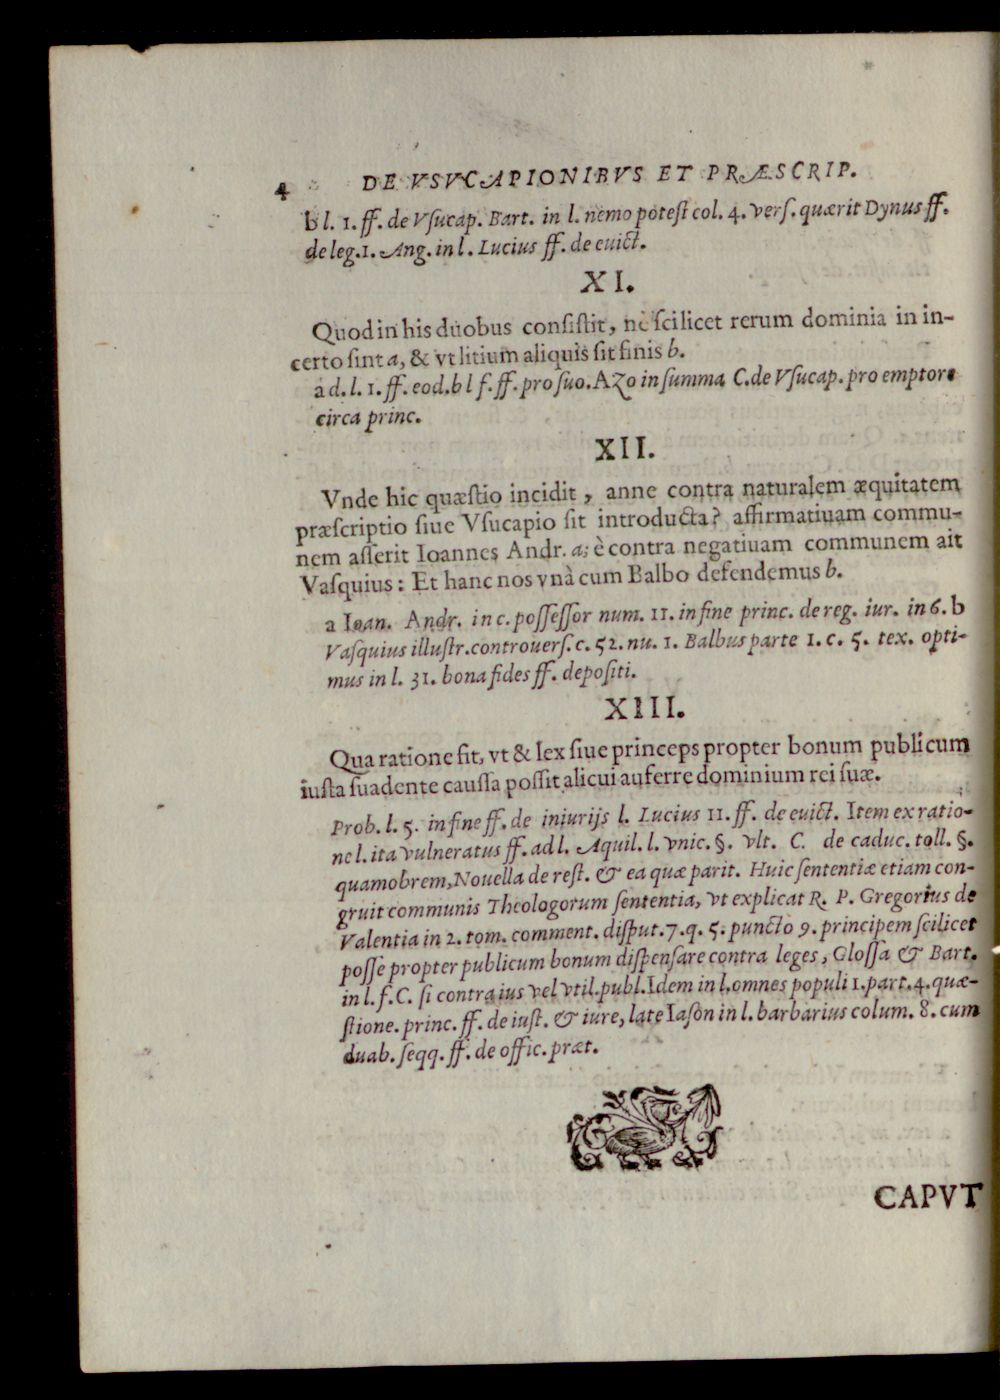 4 DE VSVCAPIONIBVS ET PRÆSCRIP.
b l. 1. ff. de Vſucap. Bart. in l. nemo poteſt col. 4. verſ. quærit Dynus ff.
de leg. 1. Ang. in l. Lucius ff. de euict.
XI.
Quod in his duobus conſiſtit, nè ſcilicet rerum dominia in in-
certo ſint a, & vt litium aliquis ſit finis b.
a d. l. 1. ff. eod. b l f. ff. pro ſuo. Azo in ſumma C. de Vſucap. pro emptore
circa princ.
XII.
Vnde hic quæſtio incidit, anne contra naturalem æquitatem
præſcriptio ſiue Vſucapio ſit introducta? affirmatiuam commu-
nem aſſerit Ioannes Andr. a; è contra negatiuam communem ait
Vaſquius: Et hanc nos vnà cum Balbo defendemus b.
a Ioan. Andr. in c. poſſeſſor num. 11. in fine princ. de reg. iur. in 6. b
Vaſquius illuſtr. controuerſ. c. 52. nu. 1. Balbus parte 1. c. 5. tex. opti-
mus in l. 31. bona fides ff. depoſiti.
XIII.
Qua ratione fit, vt & lex ſiue princeps propter bonum publicum
iuſta ſuadente cauſſa poſſit alicui auferre dominium rei ſuæ.
Prob. l. 5. in fine ff. de iniurijs l. Lucius 11. ff. de euict. Item ex ratio-
ne l. ita vulneratus ff. ad l. Aquil. l. vnic. §. vlt. C. de caduc. toll. §.
quamobrem, Nouella de reſt. & ea quæ parit. Huic ſententiæ etiam con-
gruit communis Theologorum ſententia, vt explicat R. P. Gregorius de
Valentia in 2. tom. comment. diſput. 7. q. 5. puncto 9. principem ſcilicet
poſſe propter publicum bonum diſpenſare contra leges, Gloſſa & Bart.
in l. f. C. ſi contra ius vel vtil. publ. Idem in l. omnes populi 1. part. 4. quæ-
ſtione. princ. ff. de iuſt. & iure, late Iaſon in l. barbarius colum. 8. cum
duab. ſeqq. ff. de offic. præt.
CAPVT